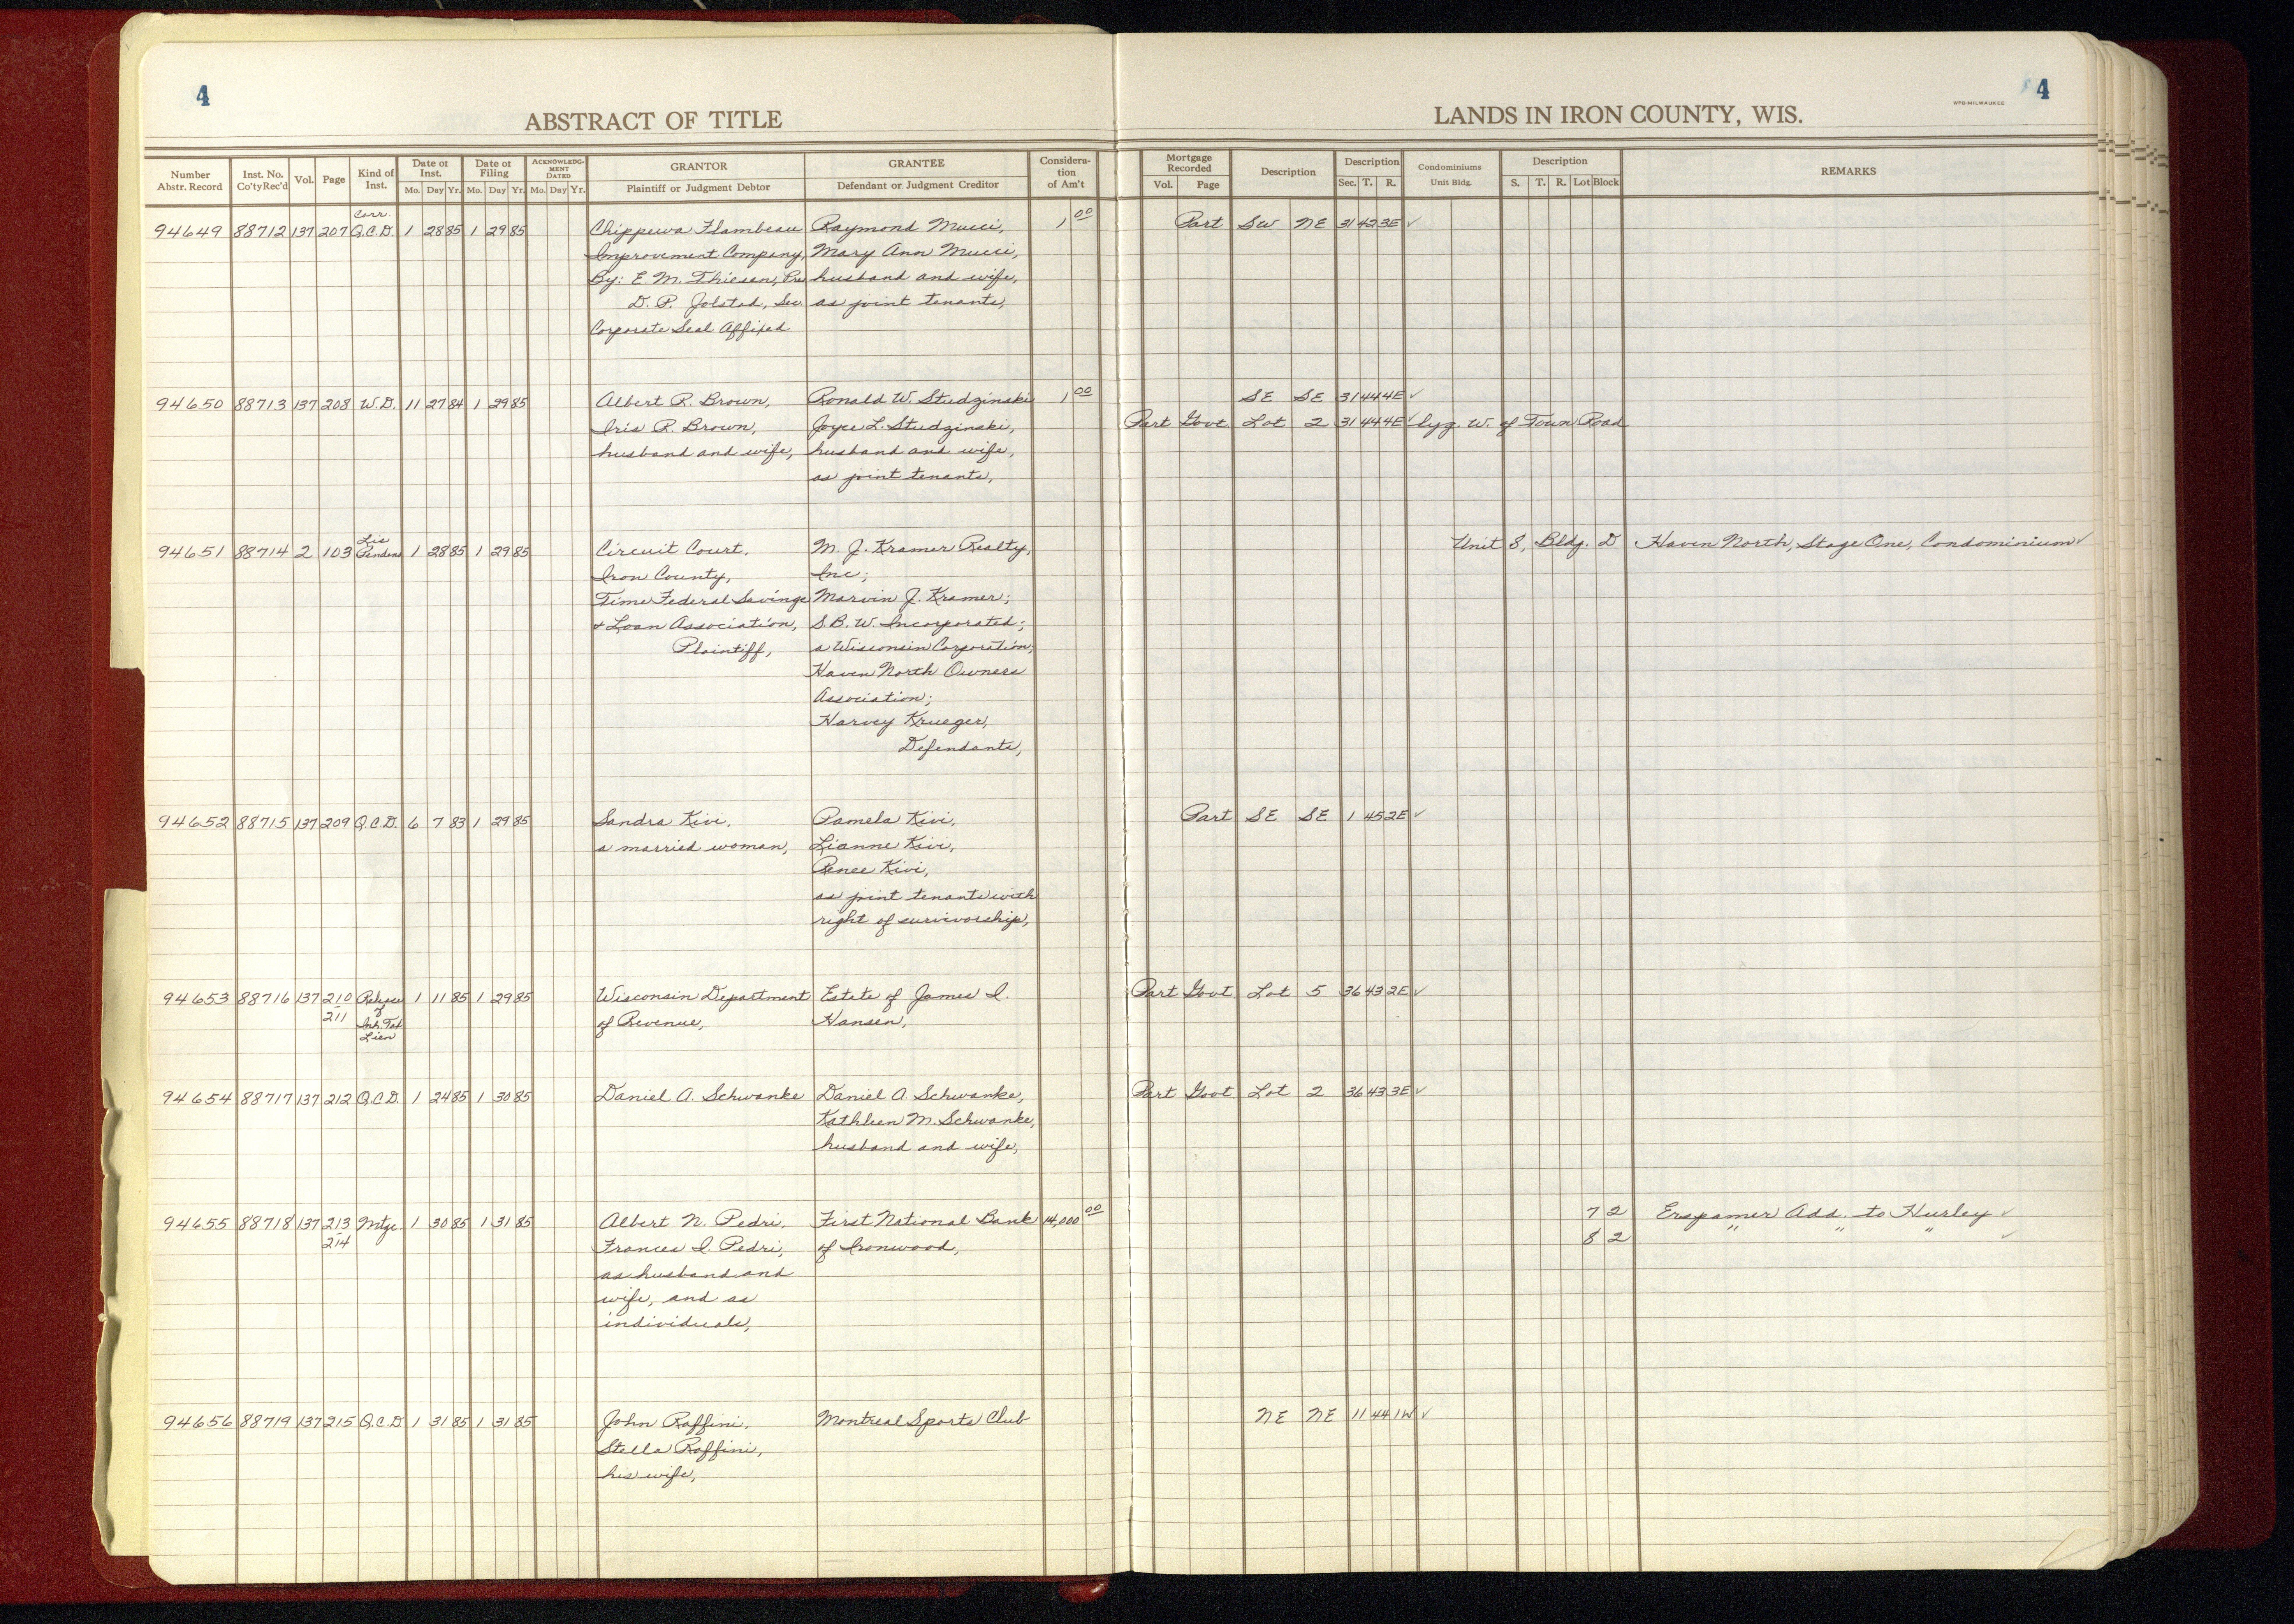 4
4
WPB-MILWAUKEE
ABSTRACT OF TITLE
LANDS IN IRON COUNTY, WIS.
Number Abstr. Record Inst. No. Co'ty Rec'd Vol. Page Kind of Inst. Date of Inst. Mo. Day Yr. Date of Filing Mo. Day Yr. ACKNOWLEDGMENT DATED Mo. Day Yr. GRANTOR Plaintiff or Judgment Debtor GRANTEE Defendant or Judgment Creditor Consideration of Am't Mortgage Recorded Vol. Page Description Description Sec. T. R. Condominiums Unit Bldg. Description S. T. R. Lot Block REMARKS
Corr.
94649 88712 137 207 Q.C.D. 1 28 85 1 29 85 Chippewa Flambeau Raymond Mucci, 1 00 Part SW NE 31 42 3E ✓
Improvement Company, Mary Ann Mucci,
By: E. M. Thiesen, Pre husband and wife,
D. P. Jolstad, Sec. as joint tenants,
Corporate Seal Affixed
94650 88713 137 208 W.D. 11 27 84 1 29 85 Albert R. Brown, Ronald W. Studzinski 1 00 SE SE 31 44 4E ✓
Iris R. Brown, Joyce L. Studzinski, Part Govt Lot 2 31 44 4E ✓ lyg. W. of Town Road
husband and wife, husband and wife,
as joint tenants,
Lis
94651 88714 2 103 Pendens 1 28 85 1 29 85 Circuit Court, M. J. Kramer Realty, Unit 8, Bldg. D Haven North, Stage One, Condominium ✓
Iron County, Inc;
Time Federal Savings Marvin J. Kramer;
+ Loan Association, S.B.W. Incorporated;
Plaintiff, a Wisconsin Corporation;
Haven North Owners
Association;
Harvey Krueger,
Defendants,
94652 88715 137 209 Q.C.D. 6 7 83 1 29 85 Sandra Kivi, Pamela Kivi, Part SE SE 1 45 2E ✓
a married woman, Lianne Kivi,
Renee Kivi,
as joint tenants with
right of survivorship,
94653 88716 137 210 Release 1 11 85 1 29 85 Wisconsin Department Estate of James I. Part Govt Lot 5 36 43 2E ✓
211 of of Revenue, Hansen,
Inh. Tax
Lien
94654 88717 137 212 Q.C.D. 1 24 85 1 30 85 Daniel A. Schwanke Daniel A Schwanke, Part Govt Lot 2 36 43 3E ✓
Kathleen M. Schwanke,
husband and wife,
94655 88718 137 213 Mtge. 1 30 85 1 31 85 Albert N. Pedri, First National Bank 14,000 00 7 2 Erspamer Add. to Hurley ✓
214 Frances I. Pedri, of Ironwood, 8 2 " " " ✓
as husband and
wife, and as
individuals,
94656 88719 137 215 Q.C.D. 1 31 85 1 31 85 John Raffini, Montreal Sports Club NE NE 11 44 1W ✓
Stella Raffini,
his wife,